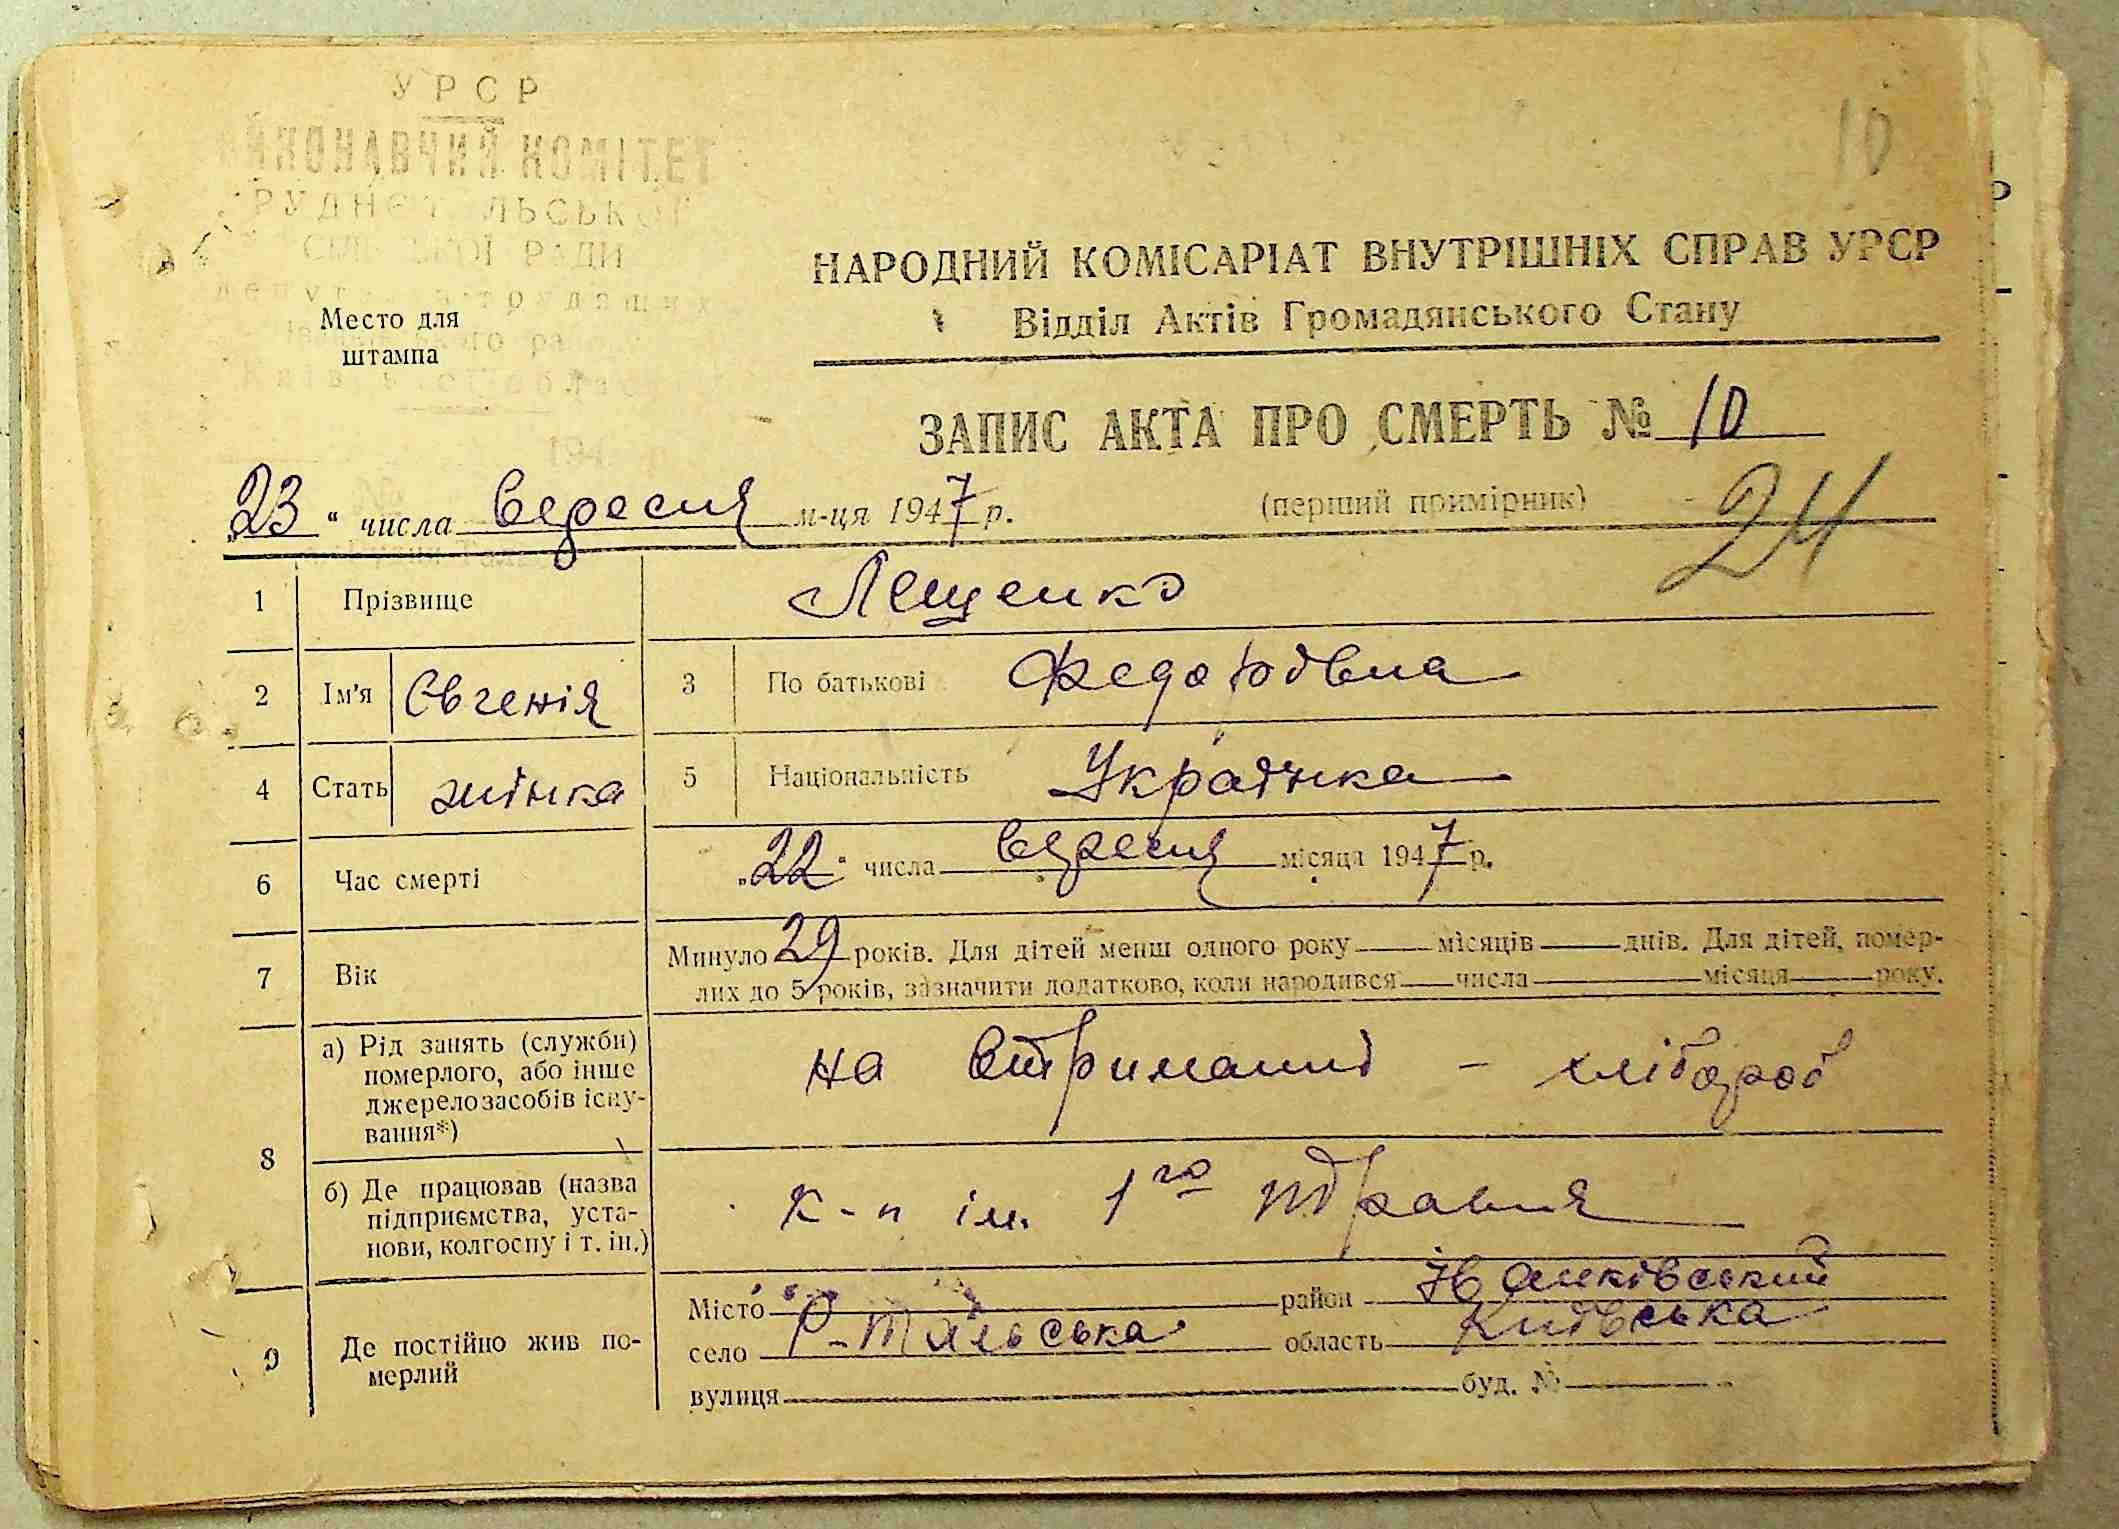 10
УРСР
ВИКОНАВЧИЙ КОМІТЕТ
СІЛЬСЬКОЇ РАДИ
НАРОДНИЙ КОМІСАРІАТ ВНУТРІШНІХ СПРАВ УРСР
Відділ Актів Громадянського Стану
Место для
штампа
ЗАПИС АКТА ПРО СМЕРТЬ № 10
„23“ числа вересня м-ця 1947 р. (перший примірник)
24
1 Прізвище Лещенко
2 Ім'я Євгенія 3 По батькові Федорівна
4 Стать жінка 5 Національність Українка
6 Час смерті „22“ числа вересня місяця 1947 р.
7 Вік Минуло 29 років. Для дітей менш одного року місяців днів. Для дітей, помер-
лих до 5 років, зазначити додатково, коли народився числа місяця року.
8 а) Рід занять (служби)
померлого, або інше
джерело засобів існу-
вання*)
на втриманні - хлібороб
б) Де працював (назва
підприємства, уста-
нови, колгоспу і т. ін.)
к-п ім. 1го травня
9 Де постійно жив по-
мерлий
Місто район Іванківський
село Р-Тальська область Київська
вулиця буд. №